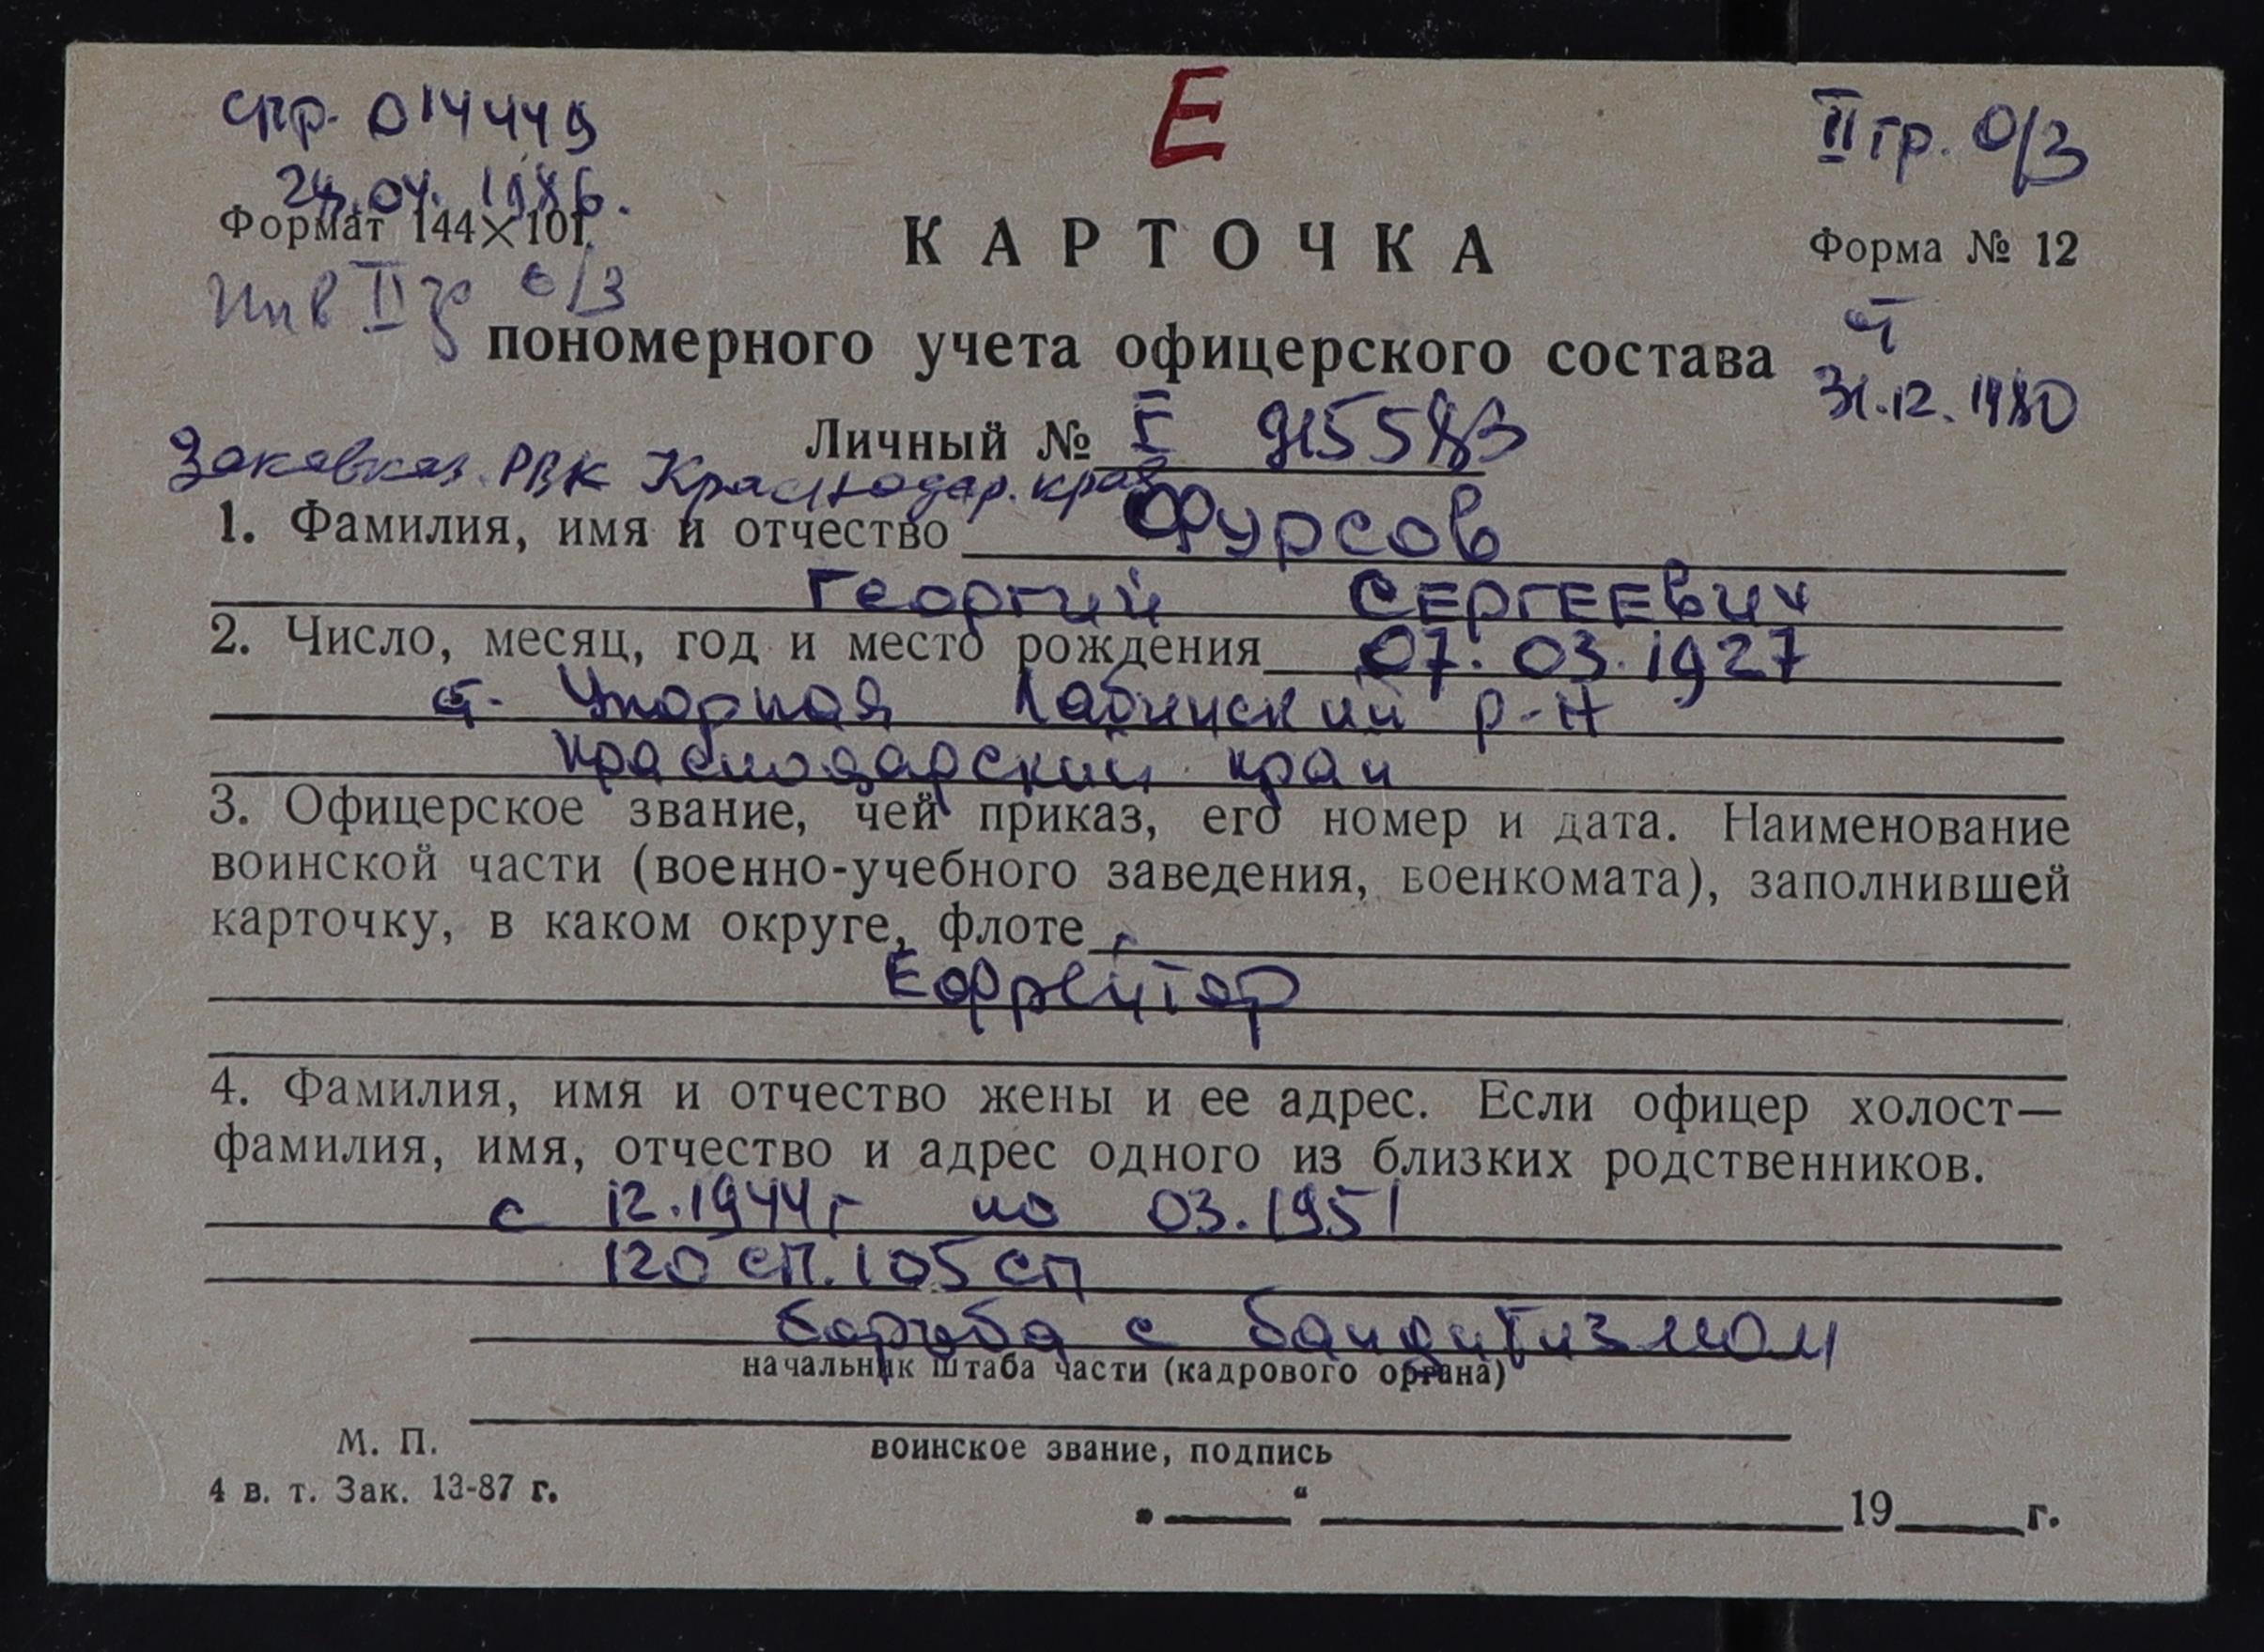 Е
спр. 014449
II гр. о/з
24.04.1986.
Формат 144×101
КАРТОЧКА
Форма № 12
Инв II гр о/з
пономерного учета офицерского состава
31.12.1980
Личный № Е 915583
РВК Краснодар. края
1. Фамилия, имя и отчество Фурсов
Георгий Сергеевич
2. Число, месяц, год и место рождения 07.03.1927
ст. Упорная Лабинский р-н
Краснодарский край
3. Офицерское звание, чей приказ, его номер и дата. Наименование
воинской части (военно-учебного заведения, военкомата), заполнившей
карточку, в каком округе, флоте
Ефрейтор
4. Фамилия, имя и отчество жены и ее адрес. Если офицер холост—
фамилия, имя, отчество и адрес одного из близких родственников.
с 12.1944г по 03.1951
120 сп. 105 сп
борьба с бандитизмом
начальник штаба части (кадрового органа)
М. П.
воинское звание, подпись
4 в. т. Зак. 13-87 г.
19 г.